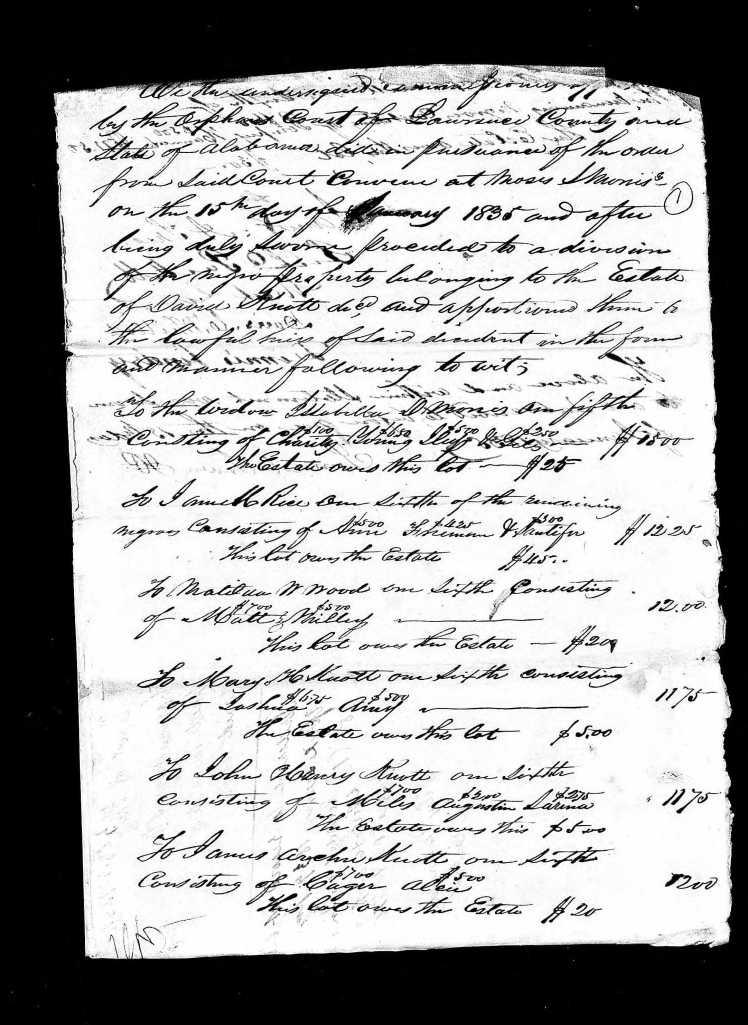 We the undersigned commissioners app
by the Orphans Court of Lawrence County and
State of Alabama did in pursuance of the order
from Said Court Convene at Moses I Morris's
on the 15th day of January 1835 and after
①
being duly Sworn proceded to a division
of the negro property belonging to the Estate
of David Knott decd and apportioned them to
the lawful heirs of Said decedent in the form
and manner following to wit;
To the widow Issabella D Morris one fifth
$100 $650 $500 $250
Consisting of Charity Young $1500
The Estate owes this lot — $25
To Jane M Rice one Sixth of the remaining
$500 $425 $300
negroes Consisting of Ann Freeman & $1225
This lot owes the Estate $45..
To Matilda W Wood one Sixth Consisting
$700 $500
of Matt & Milley 12.00
This lot owes the Estate — $20
To Mary H Knott one Sixth consisting
$675 $500
of Joshua Amy 1175
The Estate owes this lot $5.00
To John Henry Knott one Sixth
$700 $200 $275
consisting of Miles Augustin Larina 1175
The Estate owes this $5.00
To James Knott one Sixth
$700 $500
Consisting of Cager 1200
This lot owes the Estate $20